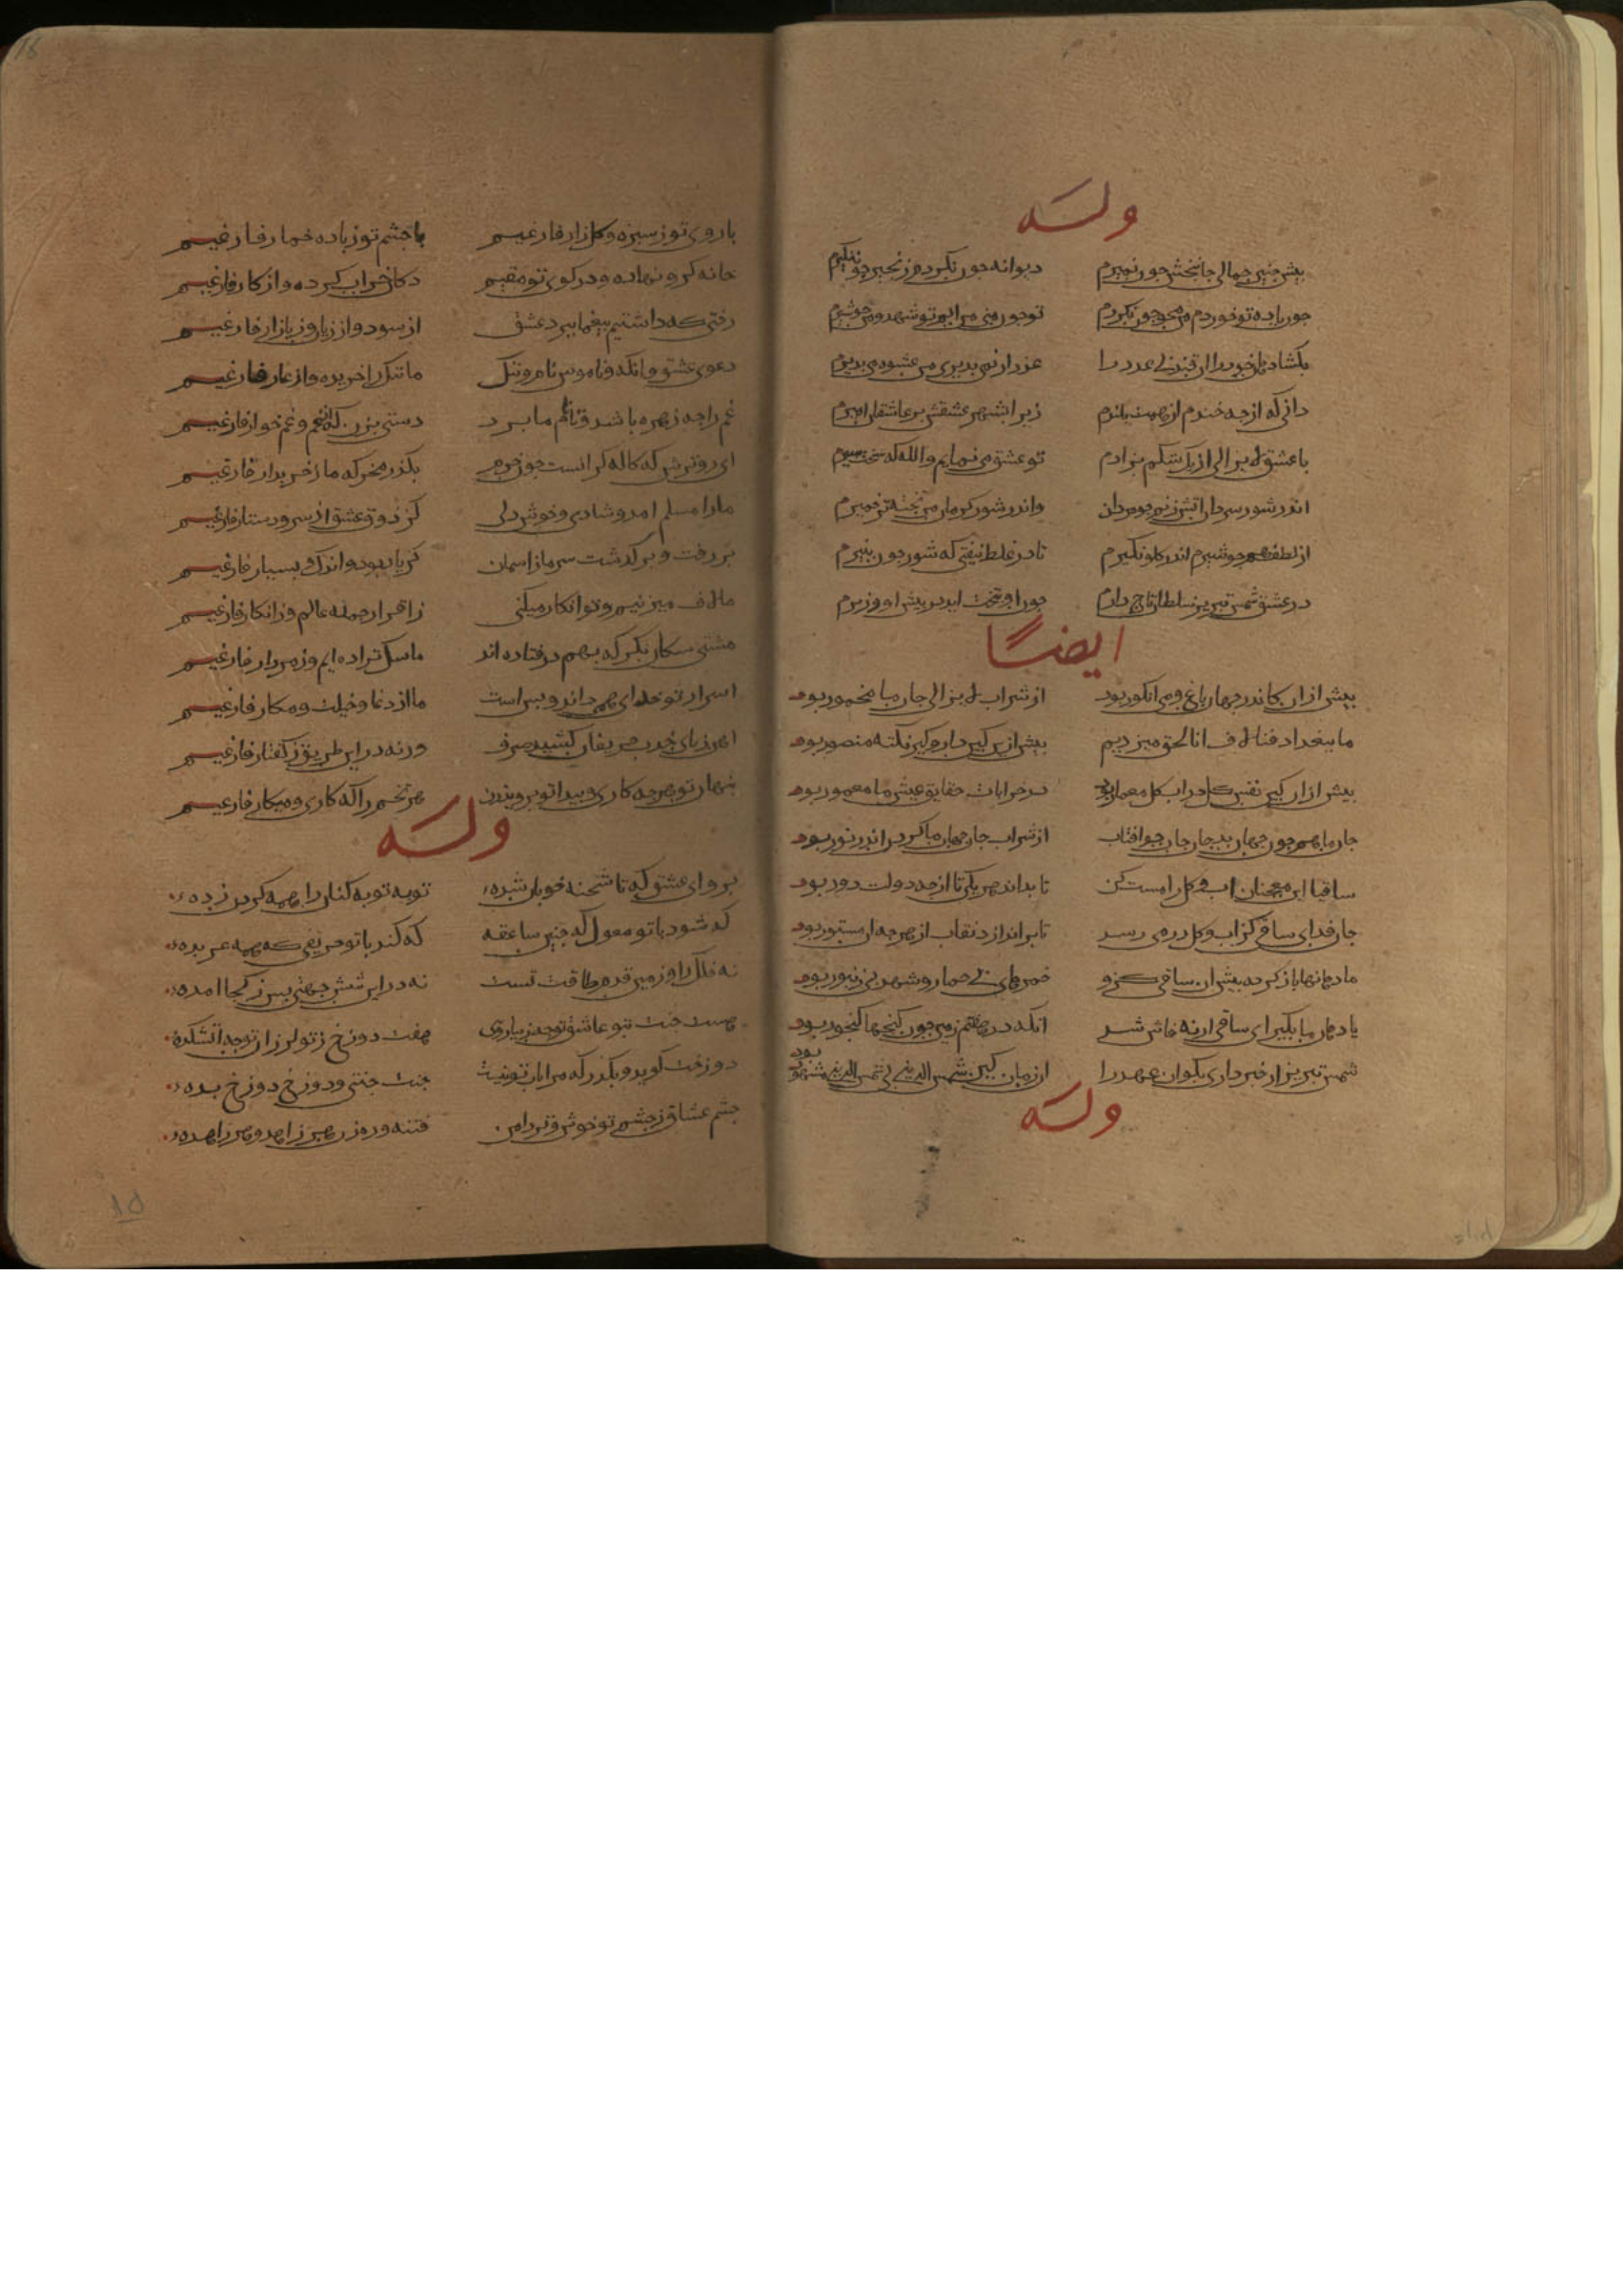 وله
پیش چنین جمالی جانبخش چون نمیرم دیوانه چون نگردم زنجیر چون نگیرم
چون باده تو خوردم من محو چون نگردم تو چون میی من ابم تو شهد و من چو شیرم
بکشا دهان خود را ان قند بی عدد را عذر ار نمی پذیری من عشوه می پذیرم
دانی که از چه خندم از همت بلندم زیرا بشهر عشقش بر عاشقان امیرم
با عشق لایزالی از یک شکم بزادم نو عشق می نمایم والله که سخت پیرم
اندر تنور سردان اتش زنم چو مردان واندر تنور گرمان من پخته تر خمیرم
از لطف همچو شیرم اندر گلو نگیرم تا در غلط نیفتی گه شور چون پنیرم
در عشق شمس تبریز سلطان تاج دارم چون او بتخت اید من پیش او وزیرم
ایضًا
پیش از ان کاندر جهان باغ و می و انکور بود از شراب لایزالی جان ما مخمور بود
ما ببغداد فنا لاف انا الحق میزدیم پیش ازین کین دار و گیر نکته منصور بود
پیش از ان کین نفس کل در اب و کل معمار بود در خرابات حقایق عیش ما معمور بود
جان ما همچون جهان بد جام جان چو افتاب از شراب جان جهان تا گردن اندر نور بود
ساقیا این معجبان اب و کل را مست کن تا بداند هر یکی تا از چه دولت دور بود
جان فدای ساقی کز اب و کل در می رسد تا براندازد نقاب از هر چه ان مستور بود
ما دهانها باز کرده پیش ان ساقی کزو خمرهای بی خمار و شهد بی زنبور بود
یا دهان ما بگیر ای ساقی ار نه فاش شد انکه در هفتم زمین چون گنجها گنجور بود
شمس تبریز ار خبر داری بگو ان عهد را ان زمان کین شمس الدین بی شمس الدین مشهور بود
وله
با روی تو ز سبزه و کلزار فارغیم با چشم تو ز باده خمار فارغیم
خانه گرو نهاده و در کوی تو مقیم دکان خراب کرده و از کار فارغیم
رختی که داشتیم بیغما ببرد عشق از سود و از زیان و ز بازار فارغیم
دعوی عشق وانگه و ناموس نام و ننگ ما ننگ را خریده و از عار فارغیم
غم را چه زهره باشد تا نام ما برد دستی بزن که از غم و غم خوار فارغیم
ای روترش که کاله گرانست چون خرم بگذر مخر که ما ز خریدار فارغیم
ما را مسلم امد و شادی و خوش دلی کز ذوق عشق از سر و دستار فارغیم
بر رفت و بر گذشت سر ما ز اسمان کز یاد بود و اندک و بسیار فارغیم
ما لاف میزنیم و تو انکار میکنی ز اقرار جمله عالم و ز انکار فارغیم
مشتی سگان نگر که بهم در فتاده اند ما سگ نزاده ایم و ز مردار فارغیم
اسرار تو خدای همی داند و بس است ما از دغا و حیلت و مکار فارغیم
ورنه در این طریق ز گفتار فارغیم
پنهان تو هر چه کاری و پیدا تو بروید ان هر تخم را که کاری و میکار فارغیم
وله
برو ای عشق که تا شحنه خوبان شده توبه و توبه کنان را همه گردن زده
که شود با تو معول که چنین صاعقه که کند با تو حریفی که همه عربده
نه فلک را و زمین قدم و طاقت تست نه در این شش جهتی پس ز کجا امده
هشت جنت بتو عاشق تو چه زیبا رویی هفت دوزخ ز تو لرزان تو چه اتشکده
دوزخت گوید و بگذر که مرا تاب تو نیست جنت جنتی و دوزخ دوزخ بده
چشم عشاق ز چشم تو خوش و تر دامن فتنه و ره زن هر زاهد و هر زاهده